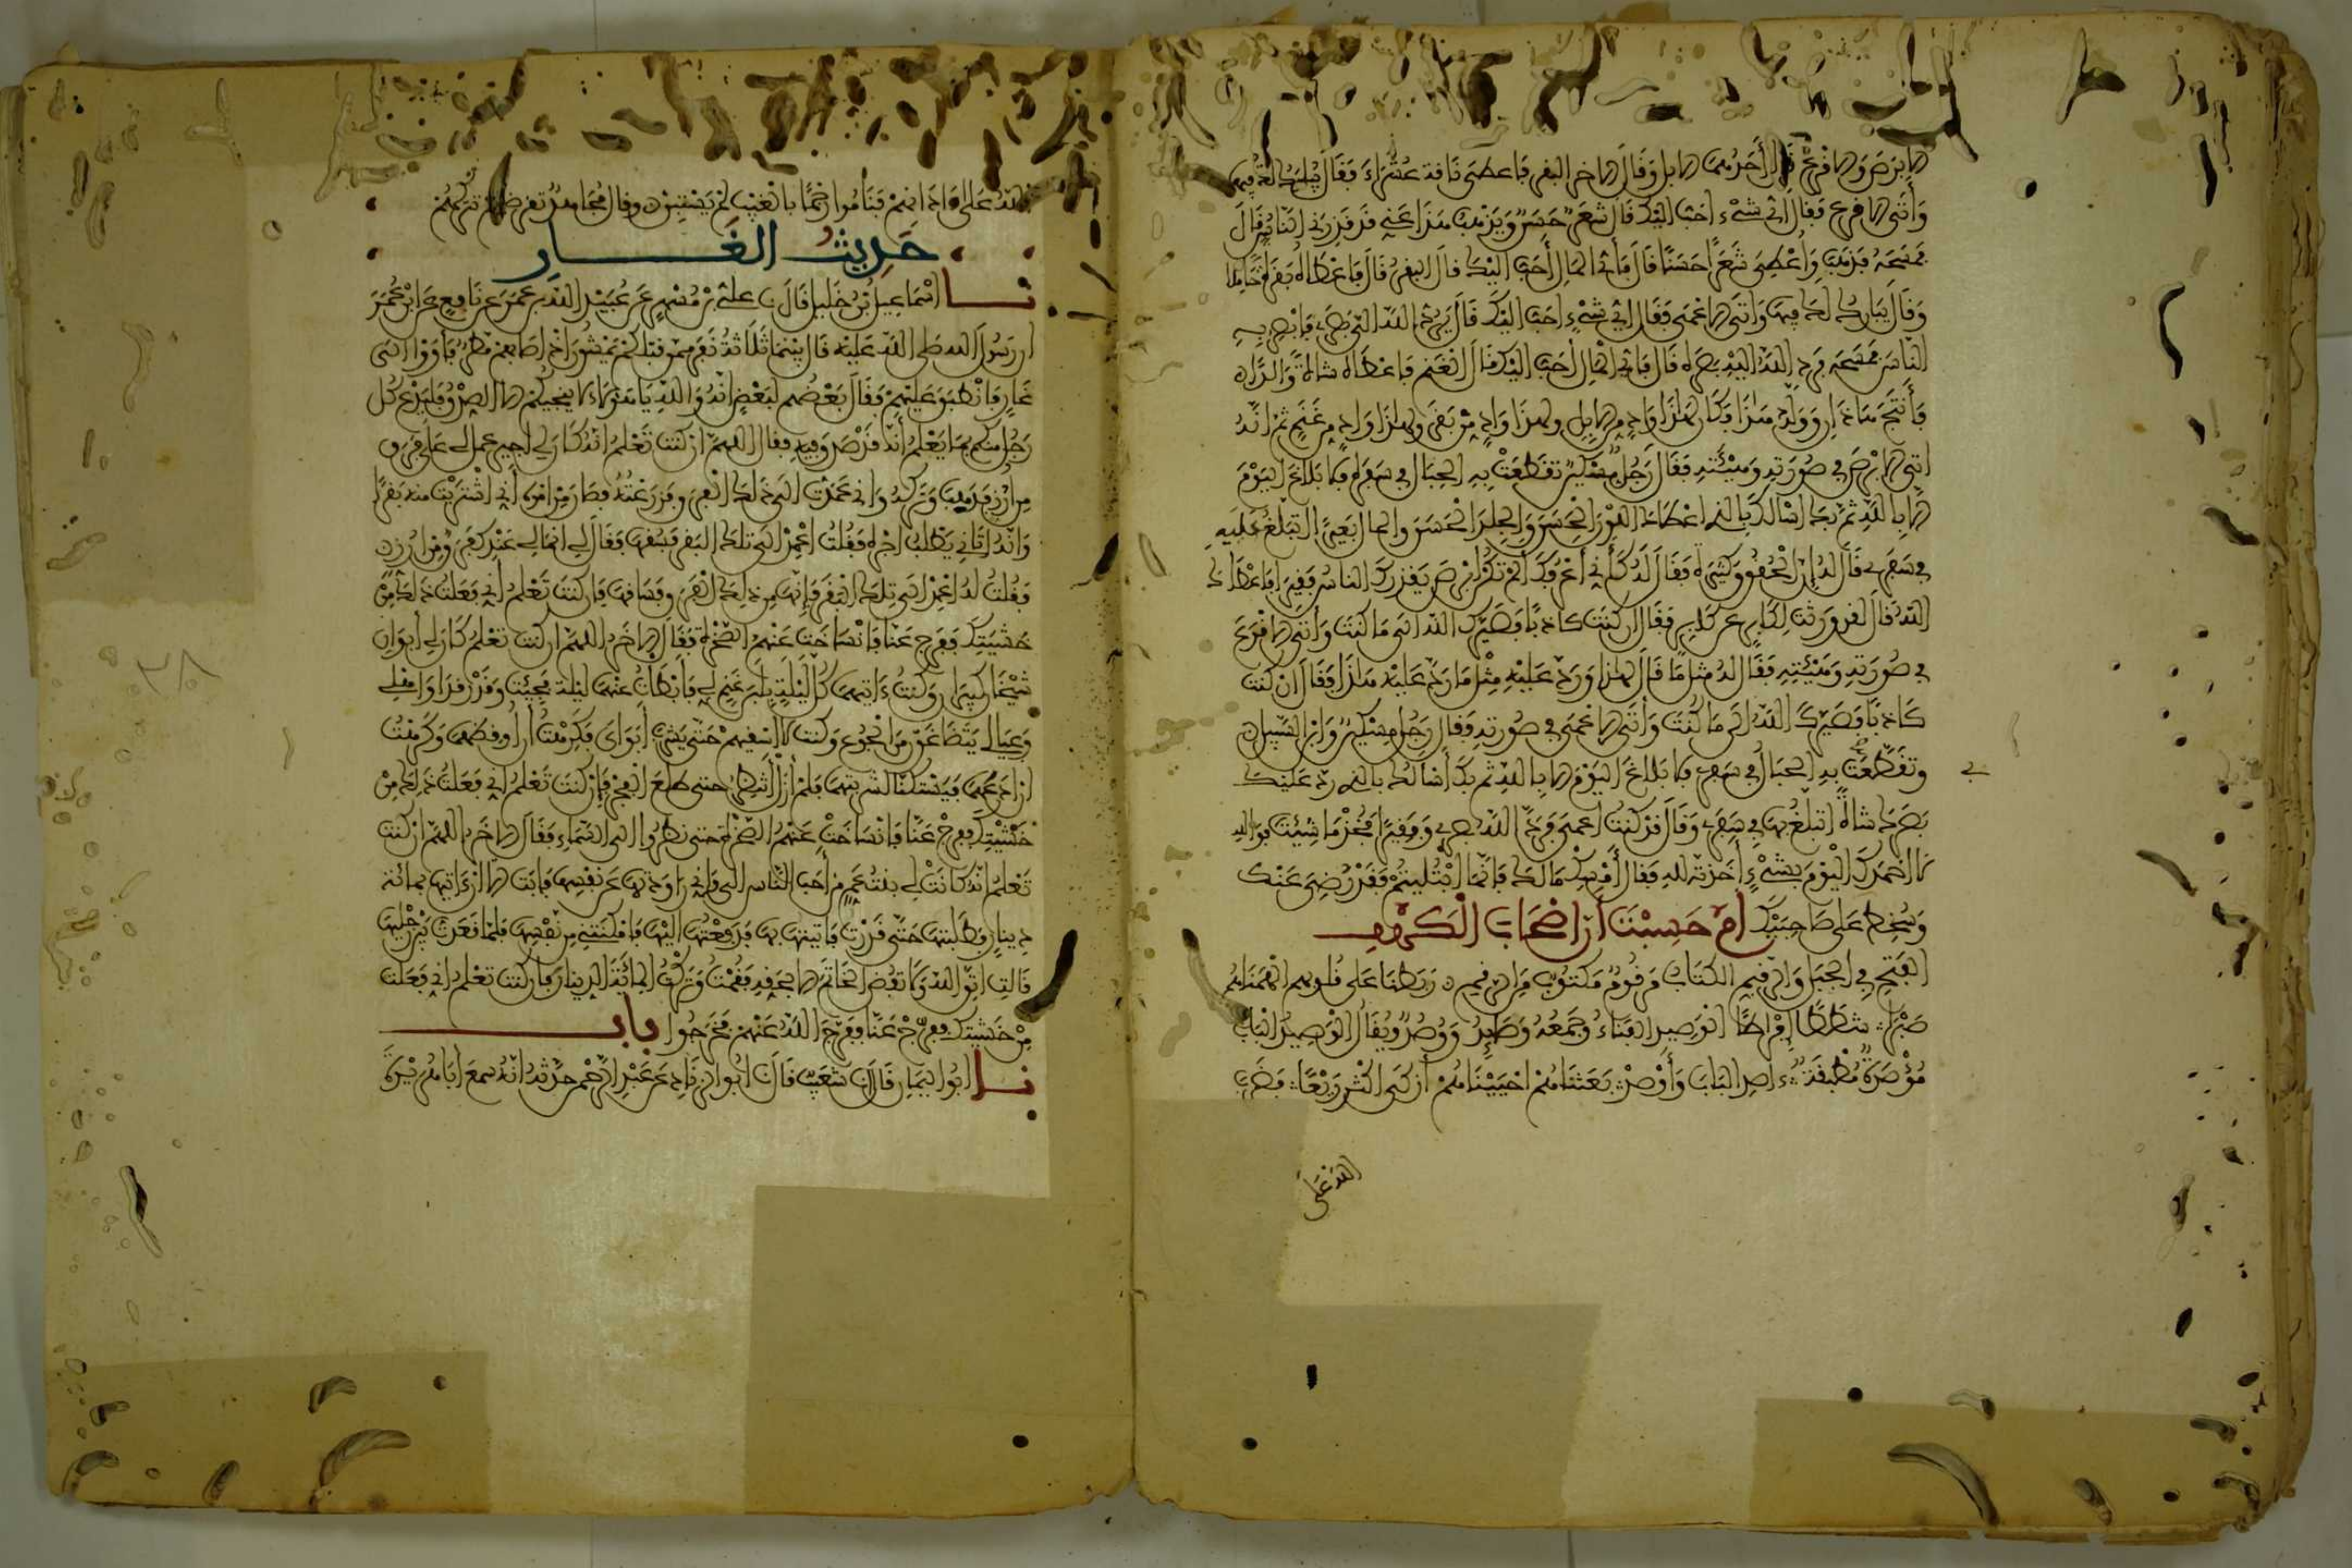 الابرص والاقرع قال أحدهما الابل وقال الاخر البقر فاعطى ناقة عشراء فقال يبارك لك فيها
وأتى الاقرع فقال أي شيء احب اليك قال شعر حسن ويذهب هذا عني قد قذرني الناس قال
فمسحه فذهب وأعطي شعرا حسنا قال فأي المال أحب اليك قال البقر قال فاعطاه بقرة حاملا
وقال يبارك لك فيها وأتى الاعمى فقال أي شيء احب اليك قال يرد الله الي بصري فابصر به
الناس فمسحه فرد الله اليه بصره قال فأي المال أحب اليك قال الغنم فاعطاه شاة والدا
فأنتج هذان وولد هذا فكان لهذا واد من الابل ولهذا واد من بقر ولهذا واد من غنم ثم انه
اتى الابرص في صورته وهيئته فقال رجل مسكين تقطعت به الحبال في سفره فلا بلاغ اليوم
الا بالله ثم بك اسألك بالذي اعطاك اللون الحسن والجلد الحسن والمال بعيرا اتبلغ عليه
في سفري فقال له ان الحقوق كثيرة فقال له كأني أعرفك الم تكن ابرص يقذرك الناس فقيرا فاعطاك
الله قال لقد ورثت لكابر عن كابر فقال ان كنت كاذبا فصيرك الله الى ما كنت وأتى الاقرع
في صورته وهيئته فقال له مثل ما قال لهذا ورد عليه مثل ما رد عليه هذا فقال ان كنت
كاذبا فصيرك الله الى ما كنت وأتى الاعمى في صورته فقال رجل مسكين وابن السبيل
وتقطعت به الحبال في سفري فلا بلاغ اليوم الا بالله ثم بك أسألك بالذي رد عليك
بصرك شاة اتبلغ بها في سفري وقال قد كنت اعمى فرد الله بصري وفقيرا فخذ ما شئت فوالله
لا احمدك اليوم بشيء أخذته لله فقال أمسك مالك فانما ابتليتم فقد رضي عنك
وسخط على صاحبيك أم حسبت أن اصحاب الكهف
الفتح في الجبل والرقيم الكتاب مرقوم مكتوب من الرقيم ربطنا على قلوبهم الهمناهم
صبرا شططا إفراطا الوصيد الفناء وجمعه وصائد ووصد ويقال الوصيد الباب
مؤصدة مطبقة ءاصد الباب وأوصد بعثناهم احييناهم أزكى اكثر ريعا فضرب
الله على
الله على اذانهم فناموا رجما بالغيب لم يستبن وقال مجاهد تقرضهم تتركهم
حديث الغار
نا اسماعيل بن خليل قال نا علي بن مسهر عن عبيد الله بن عمر عن نافع عن ابن عمر
ان رسول الله صلى الله عليه قال بينما ثلاثة نفر ممن قبلكم يمشون اذ اصابهم مطر فأووا الى
غار فانطبق عليهم فقال بعضهم لبعض انه والله يا هؤلاء لا ينجيكم الا الصدق فليدع كل
رجل منكم بما يعلم أنه قد صدق فيه فقال اللهم ان كنت تعلم انه كان لي اجير عمل لي على فرق
من أرز فذهب وتركه واني عمدت الى ذلك الفرق فزرعته فصار من امره أني اشتريت منه بقرا
وانه اتاني يطلب اجره فقلت اعمد الى تلك البقر فسقها فقال لي انما لي عندك فرق من ارز
فقلت له اعمد الى تلك البقر فإنها من ذلك الفرق فساقها فان كنت تعلم أني فعلت ذلك من
خشيتك ففرج عنا فانساخت عنهم الصخرة فقال الاخر اللهم ان كنت تعلم كان لي أبوان
شيخان كبيران وكنت ءاتيهما كل ليلة بلبن غنم لي فأبطأت عنهما ليلة فجئت وقد رقدا واهلي
وعيالي يتضاغون من الجوع وكنت لا أسقيهم حتى يشرب أبواي فكرهت أن أوقظهما وكرهت
أن ادعهما فيستكنا لشربتهما فلم أزل أنتظر حتى طلع الفجر فإن كنت تعلم أني فعلت ذلك من
خشيتك ففرج عنا فانساخت عنهم الصخرة حتى نظروا الى السماء فقال الاخر اللهم ان كنت
تعلم انه كانت لي بنت عم من أحب الناس الي واني راودتها عن نفسها فأبت الا ان ءاتيها بمائة
دينار فطلبتها حتى قدرت فأتيتها بها فدفعتها اليها فامكنتني من نفسها فلما قعدت بين رجليها
قالت اتق الله ولا تفض الخاتم الا بحقه فقمت وتركت المائة الدينار فان كنت تعلم أني فعلت
من خشيتك ففرج عنا ففرج الله عنهم فخرجوا باب
نا ابو اليمان قال انا شعيب قال نا ابو الزناد عن عبد الرحمن حدثه انه سمع أبا هريرة